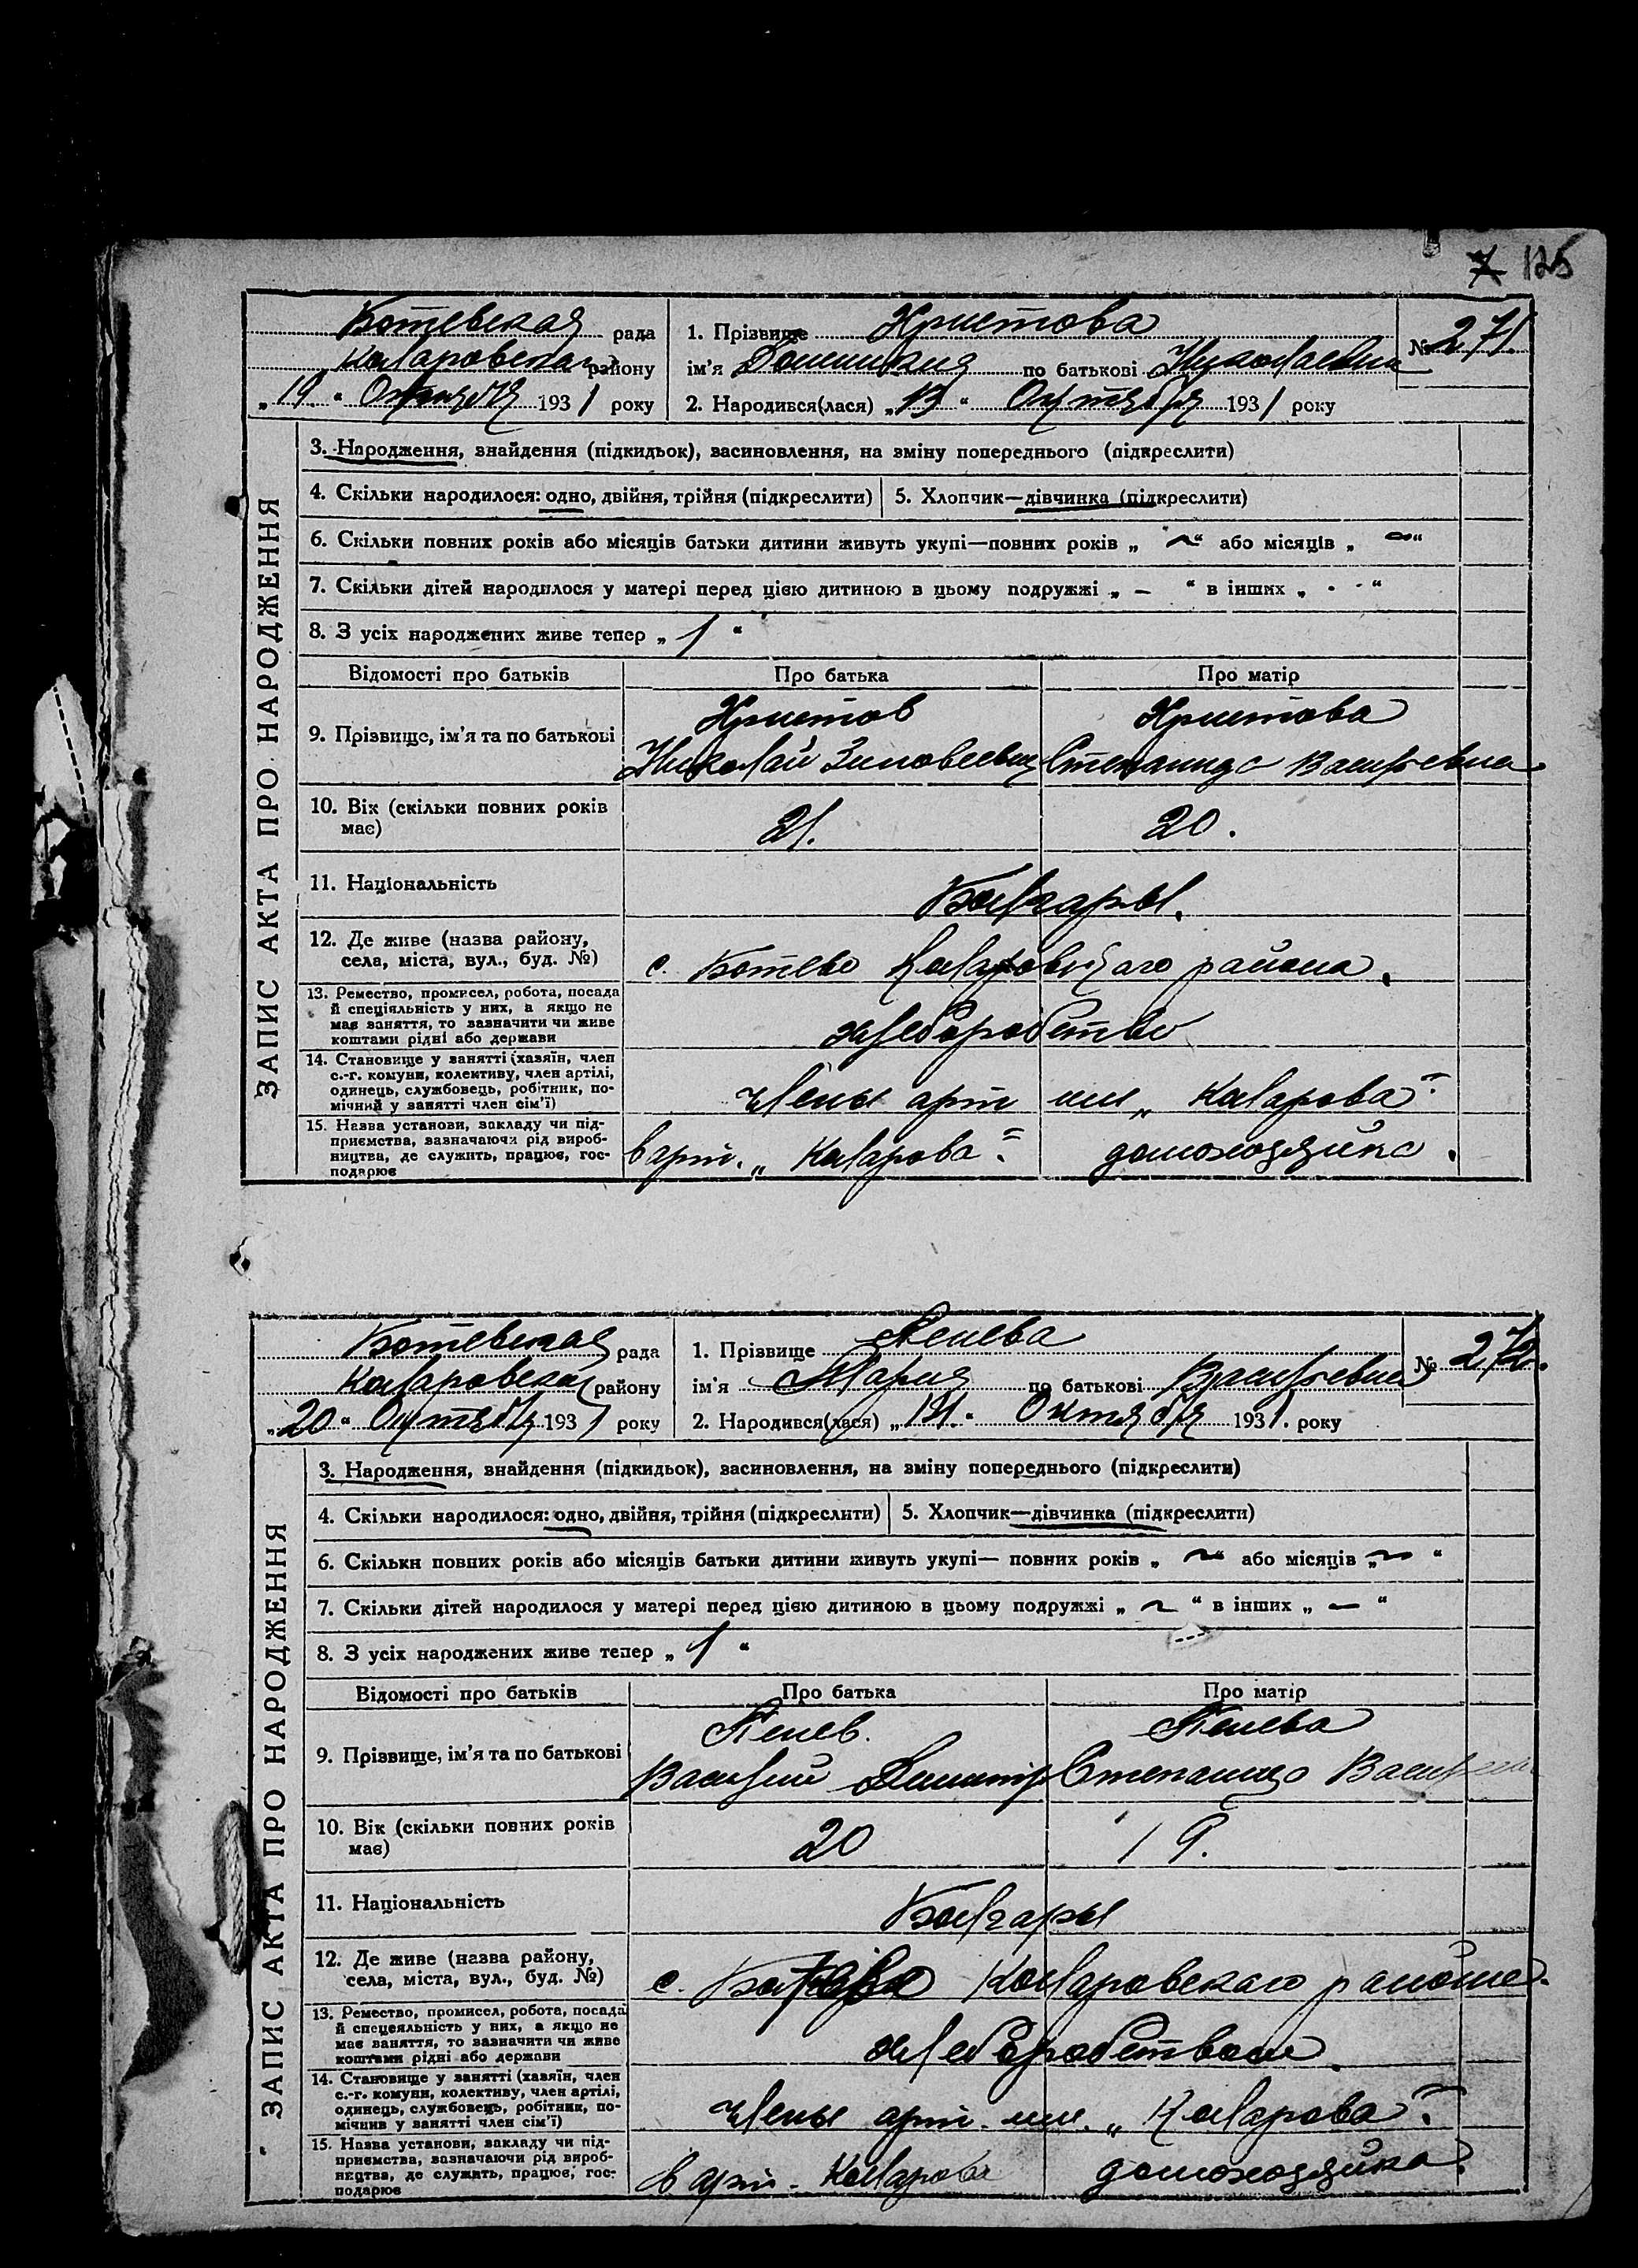 7 125
Ботевская рада
Коларовская району
„19“ Октября 1931 року
1. Прізвище Христова
№ 271.
ім'я Домникия по батькові Николаевна
2. Народився(лася) „13“ Октября 1931 року
ЗАПИС АКТА ПРО НАРОДЖЕННЯ
3. Народження, знайдення (підкидьок), васиновлення, на зміну попереднього (підкреслити)
4. Скільки народилося: одно, двійня, трійня (підкреслити)
5. Хлопчик—дівчинка (підкреслити)
6. Скільки повних років або місяців батьки дитини живуть укупі—повних років „ ~ “ або місяців „ ~ “
7. Скільки дітей народилося у матері перед цією дитиною в цьому подружжі „ – “ в інших „ - “
8. З усіх народжених живе тепер „ 1 “
Відомості про батьків
Про батька
Про матір
9. Прізвище, ім'я та по батькові
Христов
Николай Зиновеевич
Христова
Степанида Васильевна
10. Вік (скільки повних років
має)
21.
20.
11. Національність
Болгары.
12. Де живе (назва району,
села, міста, вул., буд. №)
с. Ботево Коларовскаго района.
13. Ремество, промисел, робота, посада
й спеціяльність у них, а якщо не
має заняття, то зазначити чи живе
коштами рідні або держави
хлеборобство
14. Становище у занятті (хазяїн, член
с.-г. комуни, колективу, член артілі,
одинець, службовець, робітник, по-
мічний у занятті член сім'ї)
члены арт им „Коларова“.
15. Назва установи, закладу чи під-
приємства, зазначаючи рід вироб-
ництва, де служить, працює, гос-
подарює
в арт. „Коларова“.
домохозяйка.
Ботевская рада
Коларовская району
„20“ Октября 1931 року
1. Прізвище Пенева
№ 272.
ім'я Мария по батькові Васильевна
2. Народився(лася) Октября 1931. року
ЗАПИС АКТА ПРО НАРОДЖЕННЯ
3. Народження, знайдення (підкидьок), васиновлення, на зміну попереднього (підкреслити)
4. Скільки народилося: одно, двійня, трійня (підкреслити)
5. Хлопчик—дівчинка (підкреслити)
6. Скільки повних років або місяців батьки дитини живуть укупі— повних років „ ~ “ або місяців „ ~ “
7. Скільки дітей народилося у матері перед цією дитиною в цьому подружжі „ ~ “ в інших „ – “
8. З усіх народжених живе тепер „ 1 “
Відомості про батьків
Про батька
Про матір
9. Прізвище, ім'я та по батькові
Пенев.
Василий Димитр
Пенева
Степанида Васильевна
10. Вік (скільки повних років
має)
20
19.
11. Національність
Болгары
12. Де живе (назва району,
села, міста, вул., буд. №)
с. Ботево Коларовскаго района.
13. Ремество, промисел, робота, посада
й спецеяльність у них, а якщо не
має заняття, то зазначити чи живе
коштами рідні або держави
хлеборобством.
14. Становище у занятті (хазяїн, член
с.-г. комуни, колективу, член артілі,
одинець, службовець, робітник, по-
мічнив у занятті член сім'ї)
члены арт. им. „Коларова“.
15. Назва установи, закладу чи під-
приємства, зазначаючи рід вироб-
ництва, де служить, працює, гос-
подарює
в арт. Коларова
домохозяйка.